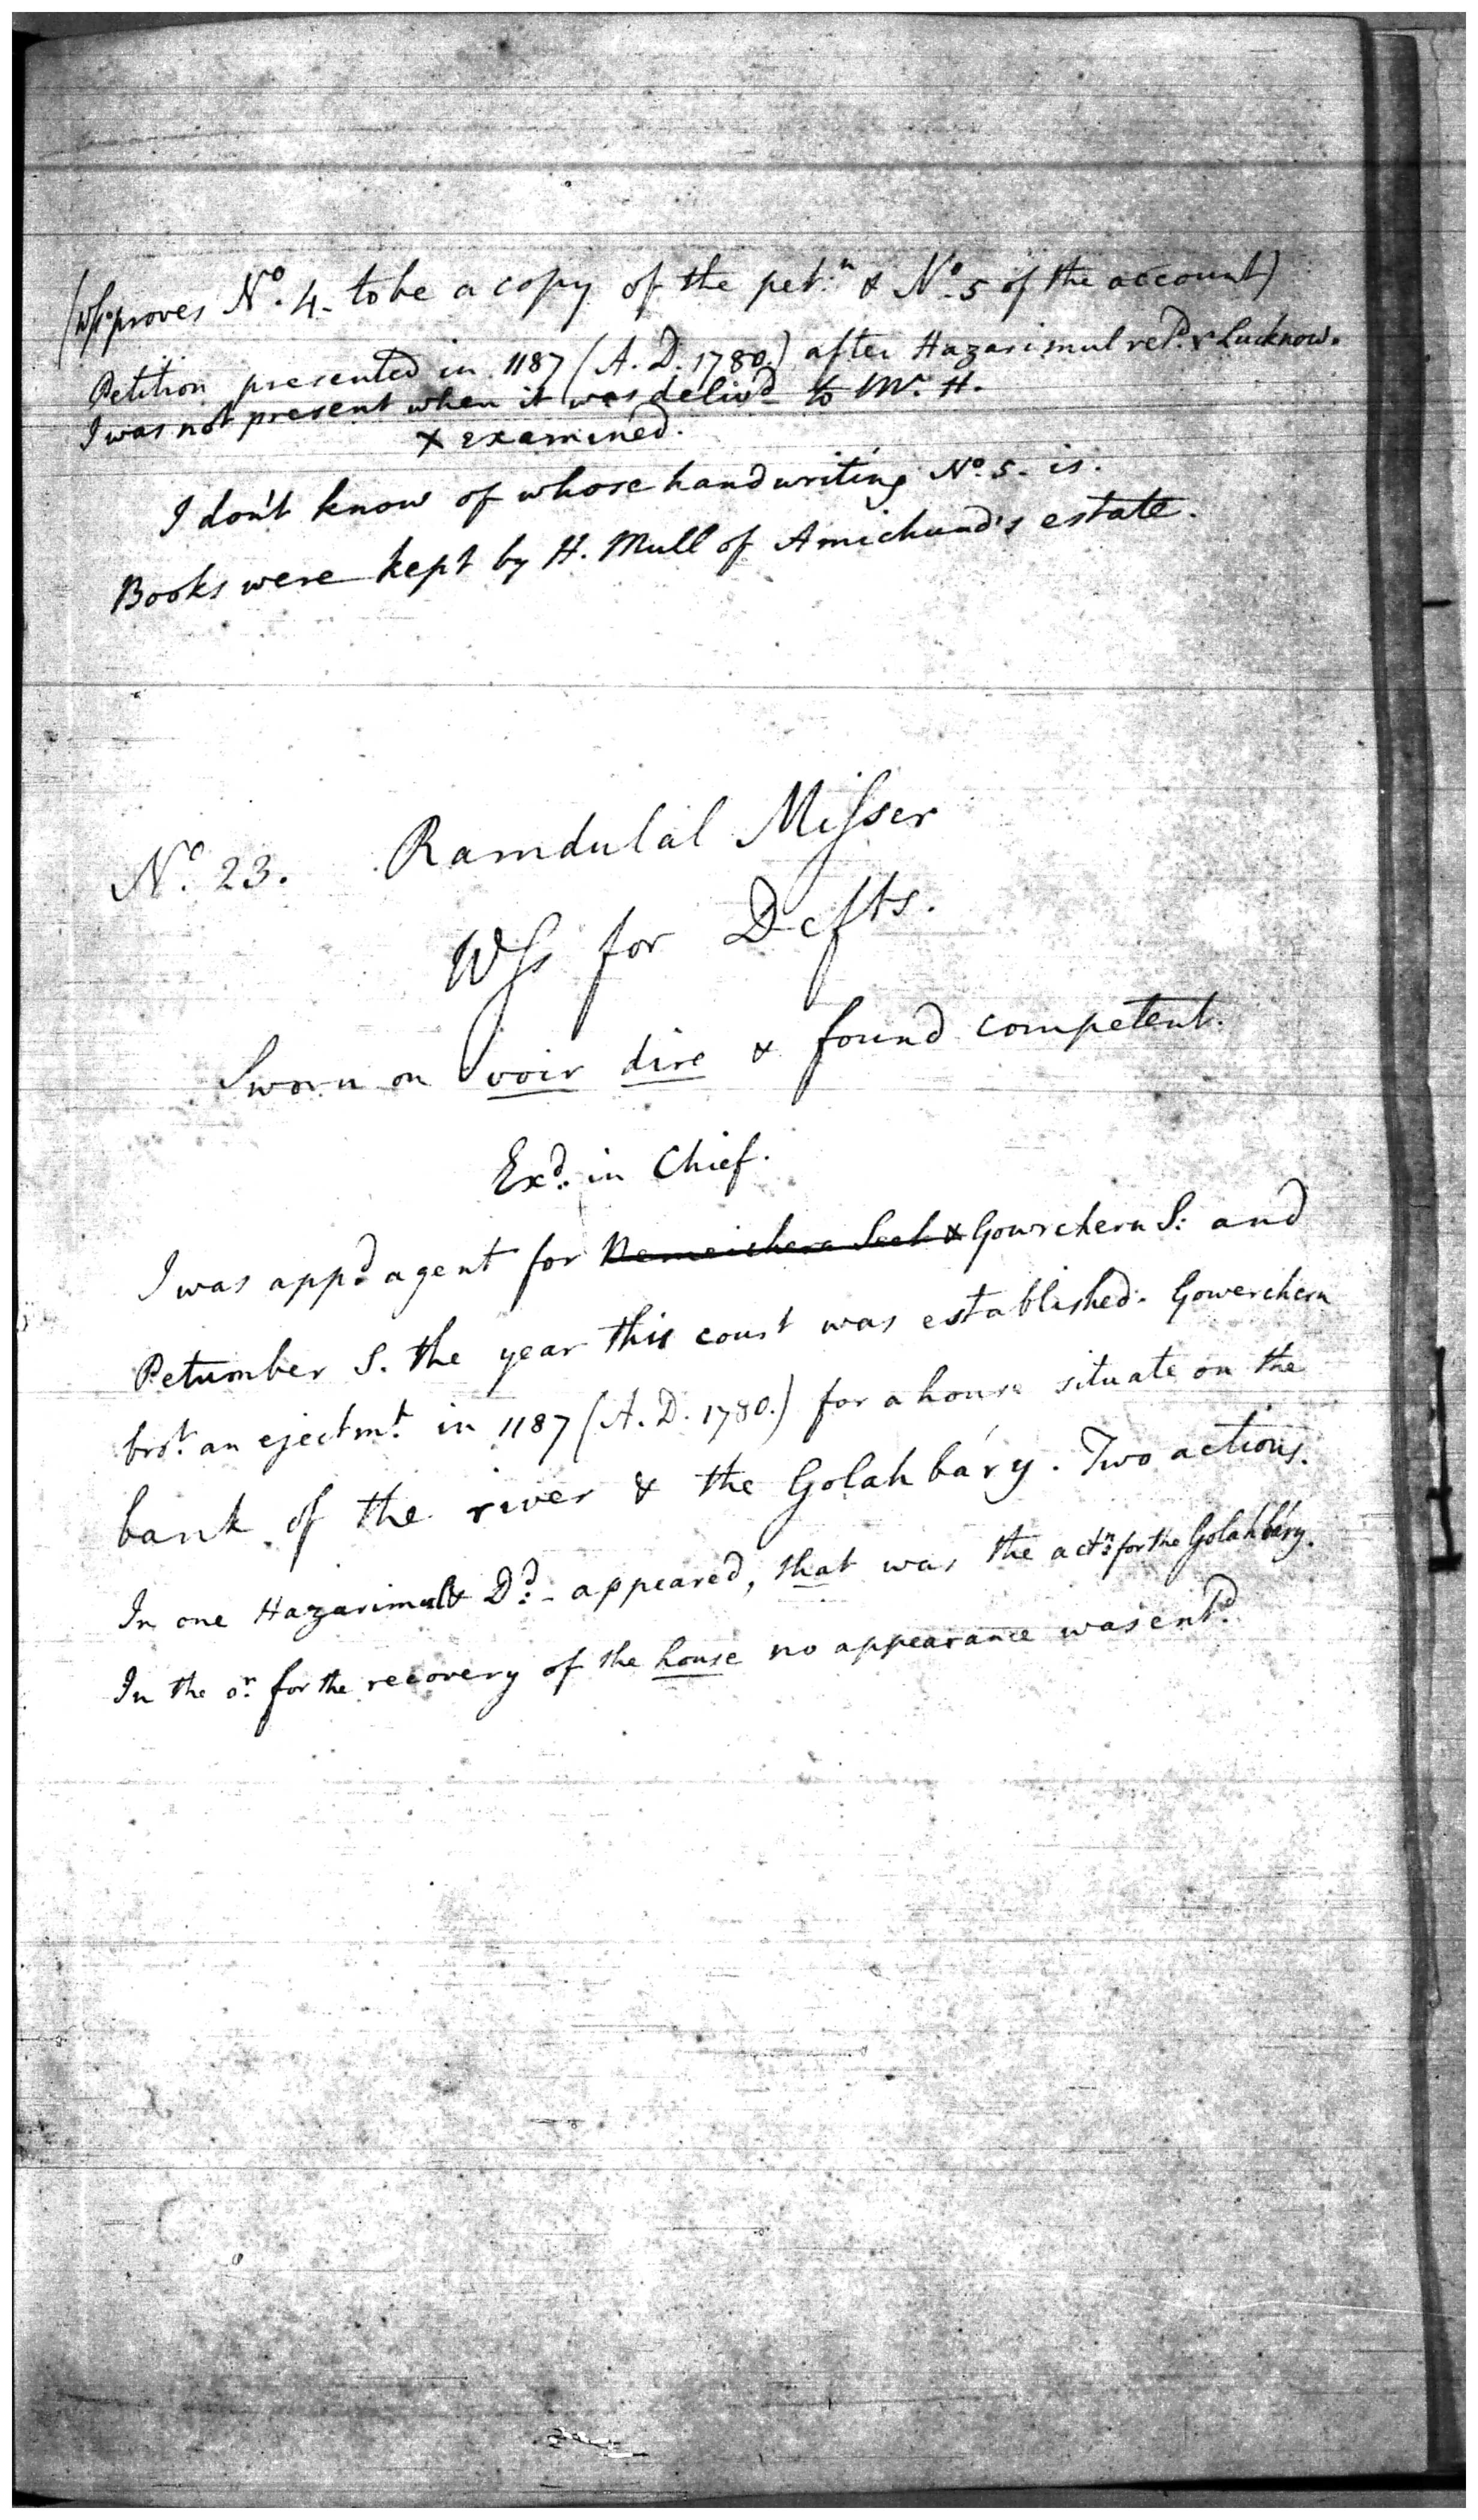 (Wss proves No. 4. to be a copy of the petn. & No. 5 of the account)
Petition presented in 1187 (A. D. 1780.) after Hazarimul retd. Lucknow.
I was not present when it was delivd to Mr. H.
X examined.
I don't know of whose handwriting No. 5. is.
Books were kept by H. Mull of Amichund's estate.
No. 23. Ramdulál Misser
Wss for Defts.
Sworn on voir dire & found competent.
Exd. in Chief.
I was appd. agent for Gowrchern S: and
Petumber S. the year this court was established. Gowerchern
brot. an ejectmt. in 1187 (A. D. 1780.) for a house situate on the
bank of the river & the Golahbáry. Two actions.
In one Hazarimull Dd. - appeared, that was the actn. for the Golahbáry.
In the or. for the recovery of the house no appearance was entd.